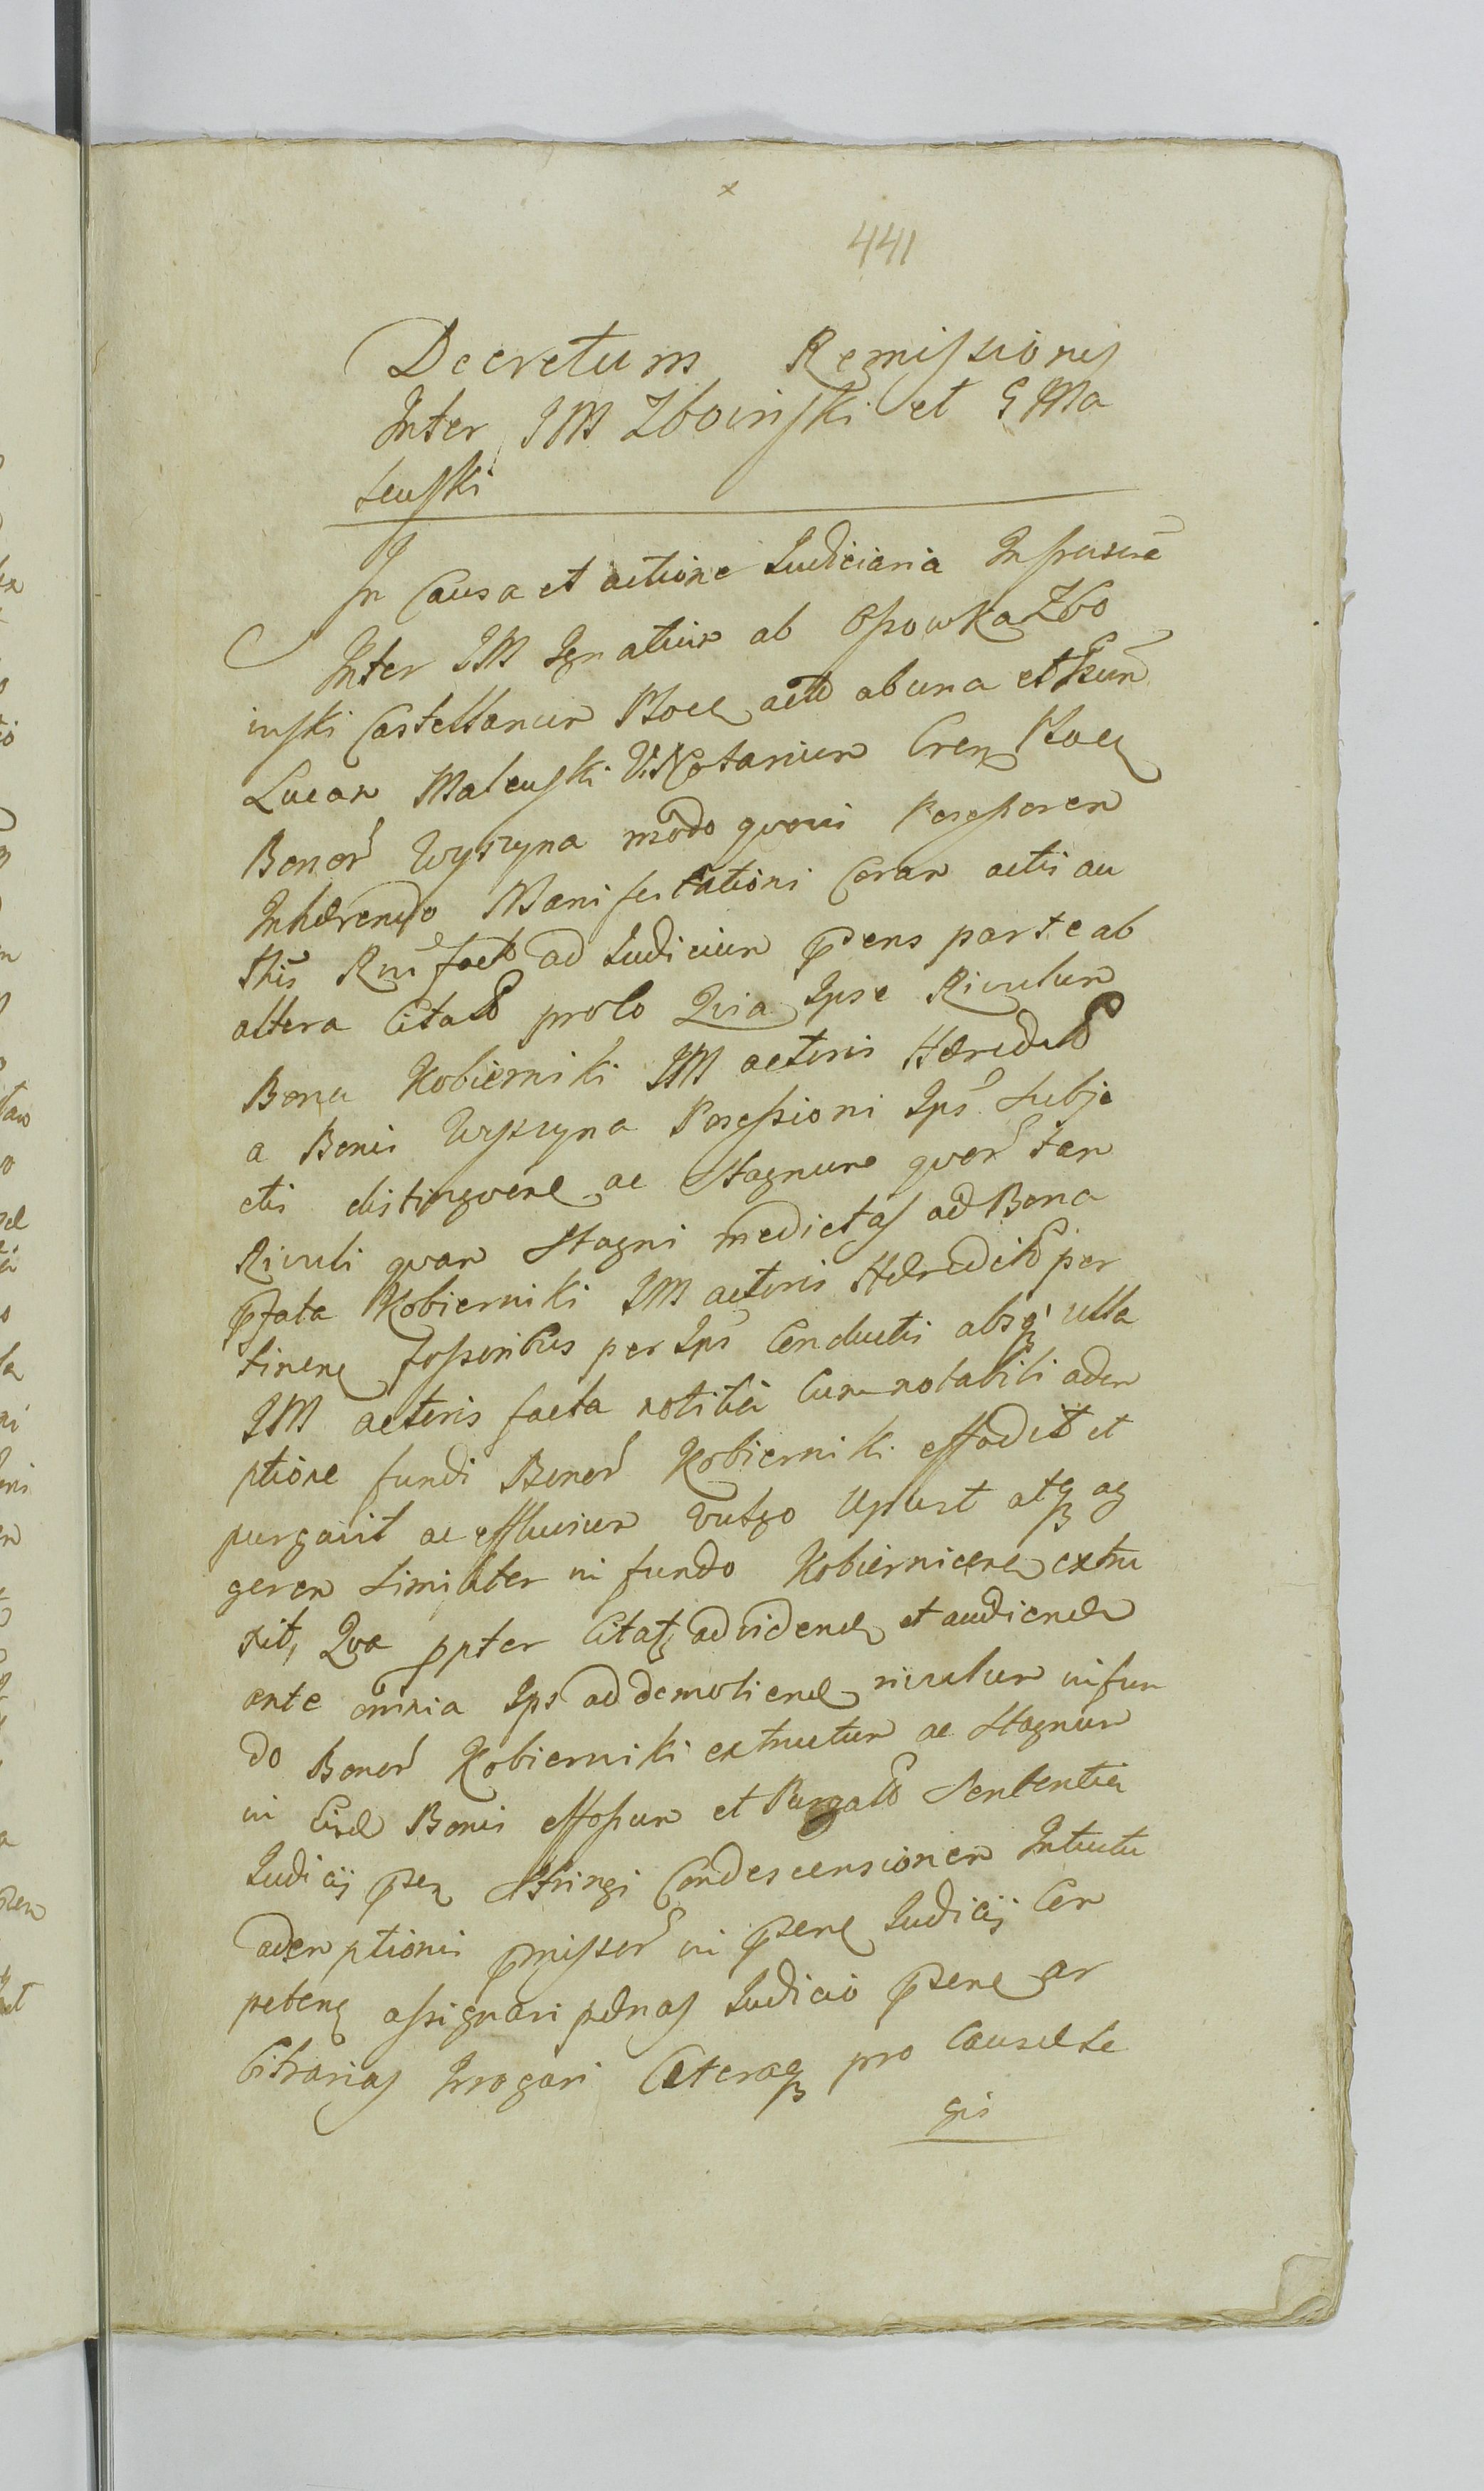 441
Decretum Remissionis
Inter IM Zboinski et G Ma
lewski
In Causa et actione Judiciaria Infrascrã
Inter IM Ignatium ab Ossowka Zbo
inski Castellanum Ploceñ ab una et
Lucam Malewski V.Notarium Ploceñ
Bonor Wyszyna modo quovis Possessorem
Inhærendo Manifestationi Coram actis au
ad Judicium pñens parte ab
altera Citato prolo Quia Ipse Rivulum
Bona Kobierniki IM actoris Hæredit
a Bonis Wyszyna Possessioni Ips Subje
ctis distingvene ac Stagnum quor tam
Rivuli quam Stagni medietas ad Bona
pfata Kobierniki IM actoris Hæredit per
tinene fossoribus per Ips Conductis absq ulla
IM actoris facta notitia Cum notabili adem
ptione fundi Bonor Kobierniki effodit et
purgavit ac effluvium vulgo Upust atq ag
gerem Similiter in fundo Kobiernicene extru
xit, Qua ppter Citat ad vidend et audiend
ante omnia Ips ad demoliend rivulum in fun
do Bonor Kobierniki extructum ac Stagnum
in Eisd Bonis effossum et Purgat Sententia
Judicij psen Stringi Condescensionem Intuitu
ademptionis pmissor in psene Judicij Com
peten assignari pænas Judicio psene ar
bitrarias Irrogari Cæteraq pro Causa de Le
gis